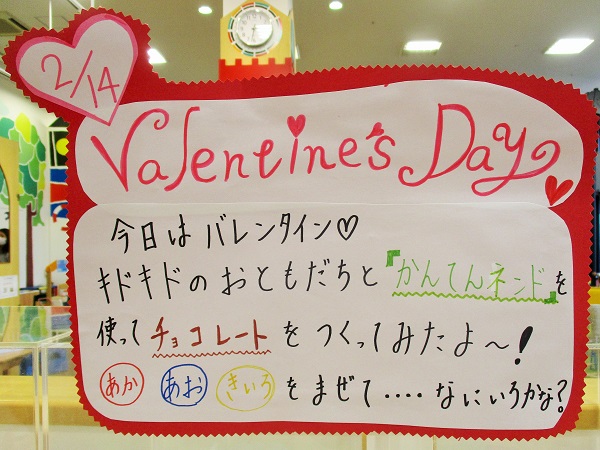 2/14
Valentine's Day
今日はバレンタイン♡
キドキドのおともだちと『かんてんネンド』を
使ってチョコレートをつくってみたよ～!
あか あお きいろ をまぜて‥‥なにいろかな?